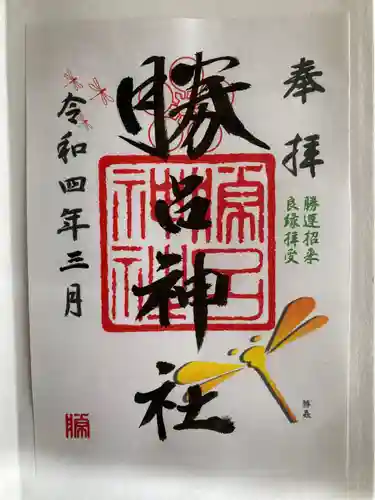 奉拝
勝運招来
良縁拝受
勝呂神社
令和四年三月
勝呂神社
勝
勝虫